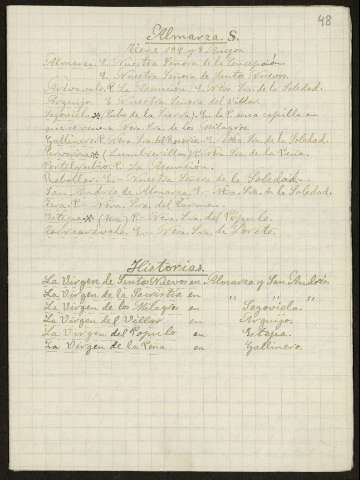 48
Almarza. S.
Tiene 19
Almarza. E. Nuestra Señora de la Concepción
E. Nuestra Señora de Santos Nuevos.
P. La Asunción. E. Ntra. Sra. de la Soledad.
Arguijo. E. Nuestra Señora del Villar
Segoviela * (Cubo de la Sierra). En la P. una capilla en
que se venera Ntra. Sra. de los Milagros.
Gallinero. P. Ntra. Sra. del Rosario. E. Ntra. Sra. de la Soledad.
* (Lumbrerillas) P. Ntra. Sra. de la Peña.
Portelrubio. P. La Asunción
Rebollar. E. - Nuestra Señora de la Soledad.
San Andrés de Almarza. E. - Ntra. Sra. de la Soledad.
Tera. P. - Ntra. Sra. del Carmen.
* (Tera) P. - Ntra. Sra. del Populo.
Torrearévalo. E. - Ntra. Sra. de Loreto.
Historias.
La Virgen de Santos Nuevos en Almarza y San Andrés.
La Virgen de la Sacristia en " "
La Virgen de los Milagros en Segoviela.
La Virgen del Villar en Arguijo.
La Virgen del Populo en Estepa.
La Virgen de la Peña en Gallinero.